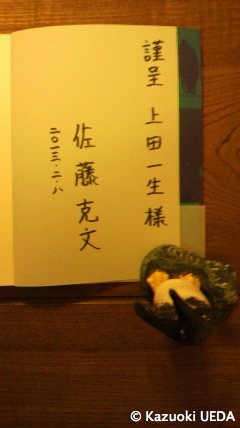 謹呈 上田一生様
佐藤克文
二〇一三・二・八
© Kazuoki UEDA